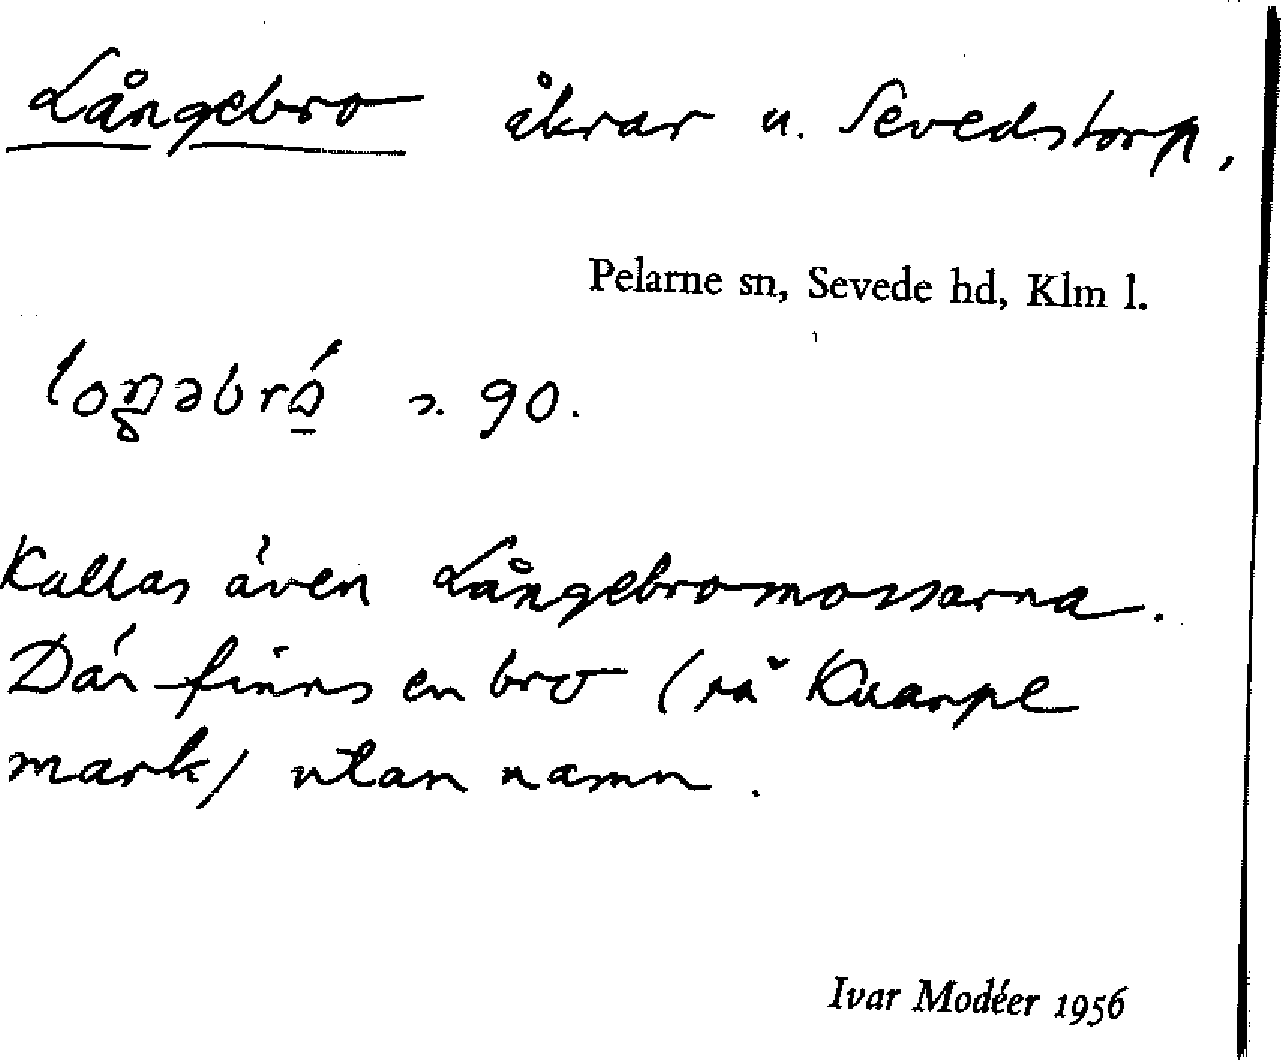 Långebro åkrar u. Sevedstorp,
Pelarne sn, Sevede hd, Klm l.
90.
Kallas även Långebromossarna.
Där finns en bro (på Kvarpe
mark/ utan namn.
Ivar Modéer 1956